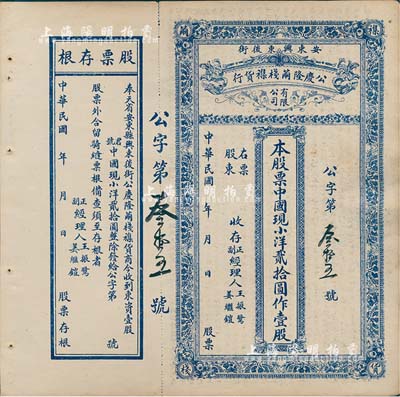 安東興東後街
公慶隆繭棧襍貨行
有限公司
公字第 叁拾五 號
本股票中國現小洋貳拾圓作壹股
右票
股東 收存 正副經理人 王振鷺 姜繼鎧
中華民國 年 月 日 股票
公字第 叁拾五 號
股票存根
奉天省安東縣興東後街公慶隆繭棧襍貨商今收到東資壹股
君號中國現小洋貳拾圓整除發給公字第 號
股票外合留騎縫票根備查須至存根者
正副經理人 王振鷺 姜繼鎧
中華民國 年 月 日 股票存根